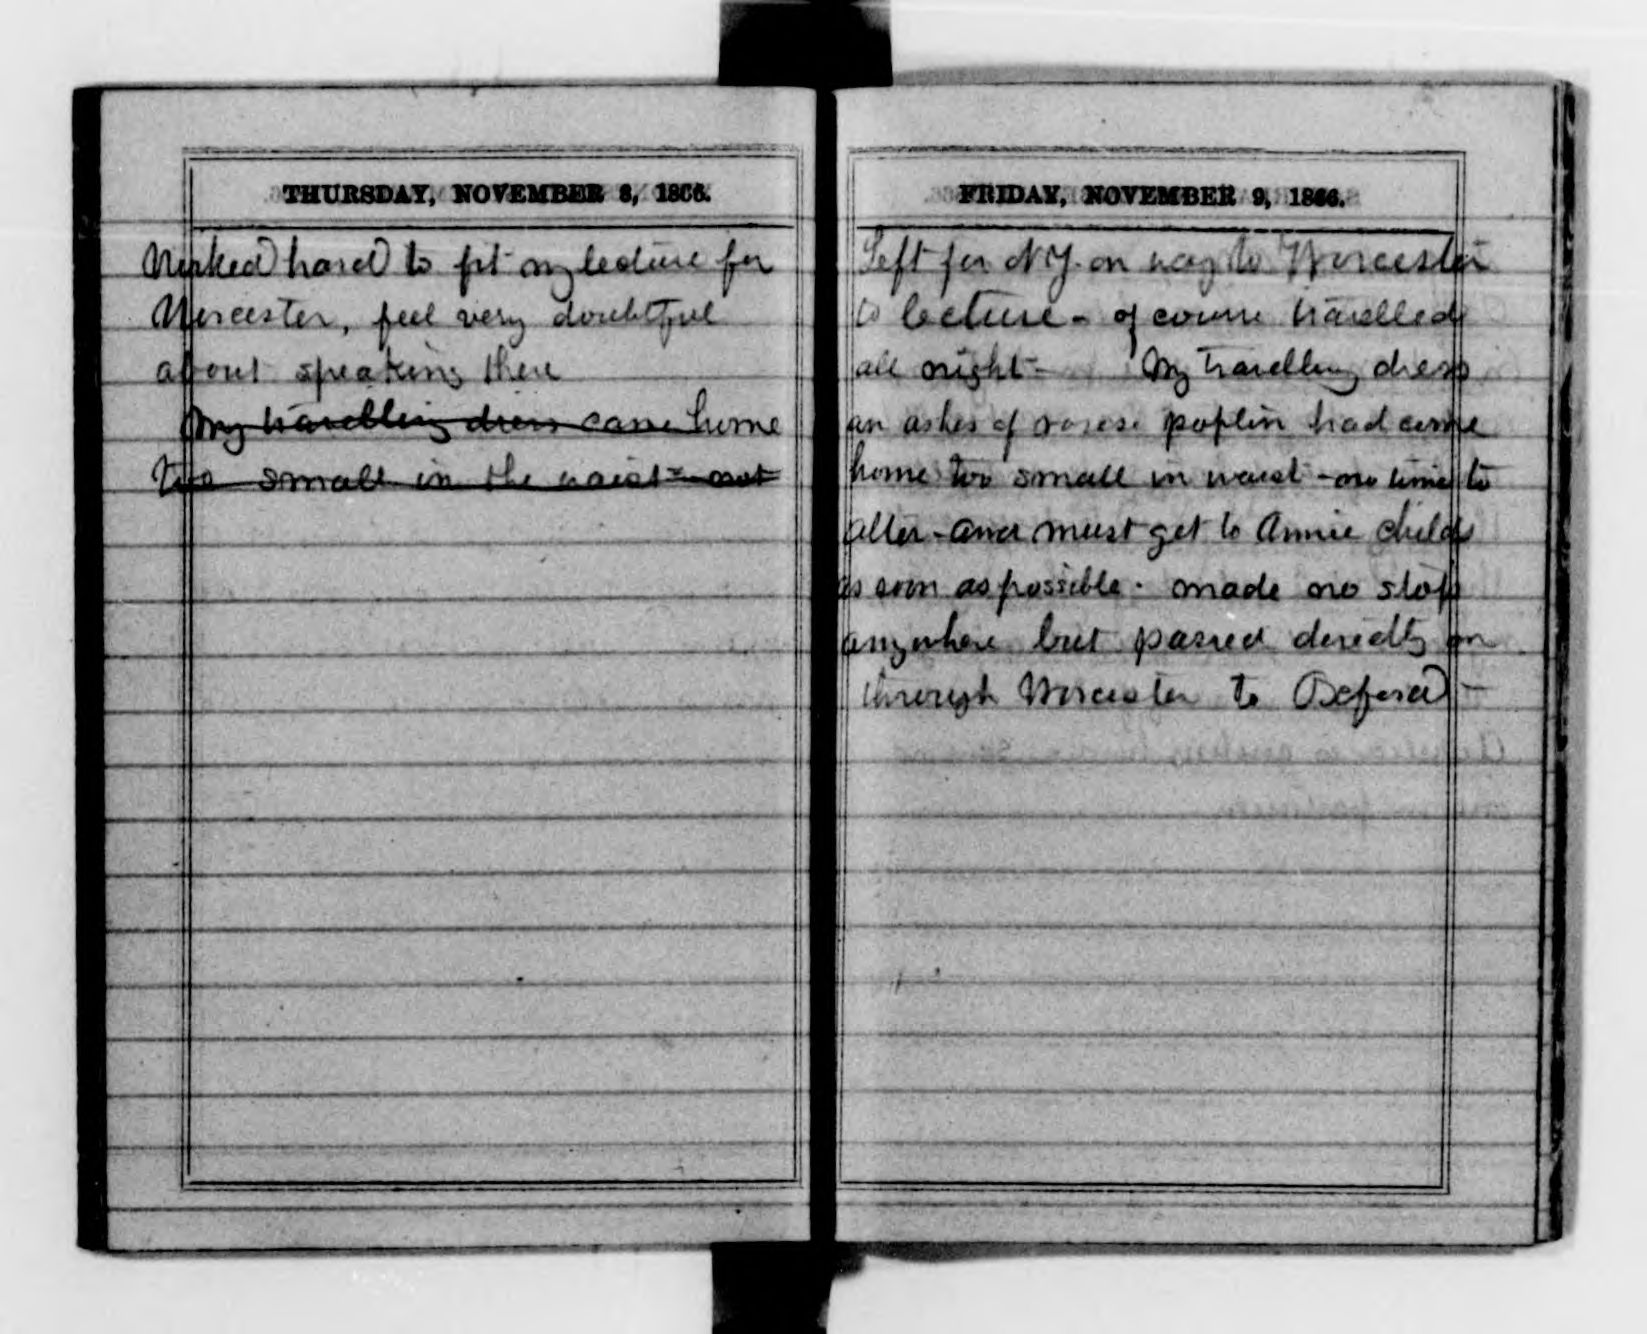 THURSDAY, NOVEMBER 8, 1866.
Worked hard to fit my lecture for
Worcester, feel very doubtful
about speaking there
My travelling dress came home
too small in the waist - not
FRIDAY, NOVEMBER 9, 1866.
Left for N Y. on way to Worcester
to lecture - of course travelled
all night - My travelling dress
an ashes of roses poplin had come
home too small in waist - no time to
alter - and must get to Annie Childs
as soon as possible. made no stop
anywhere but passed directly on
through Worcester to Oxford -